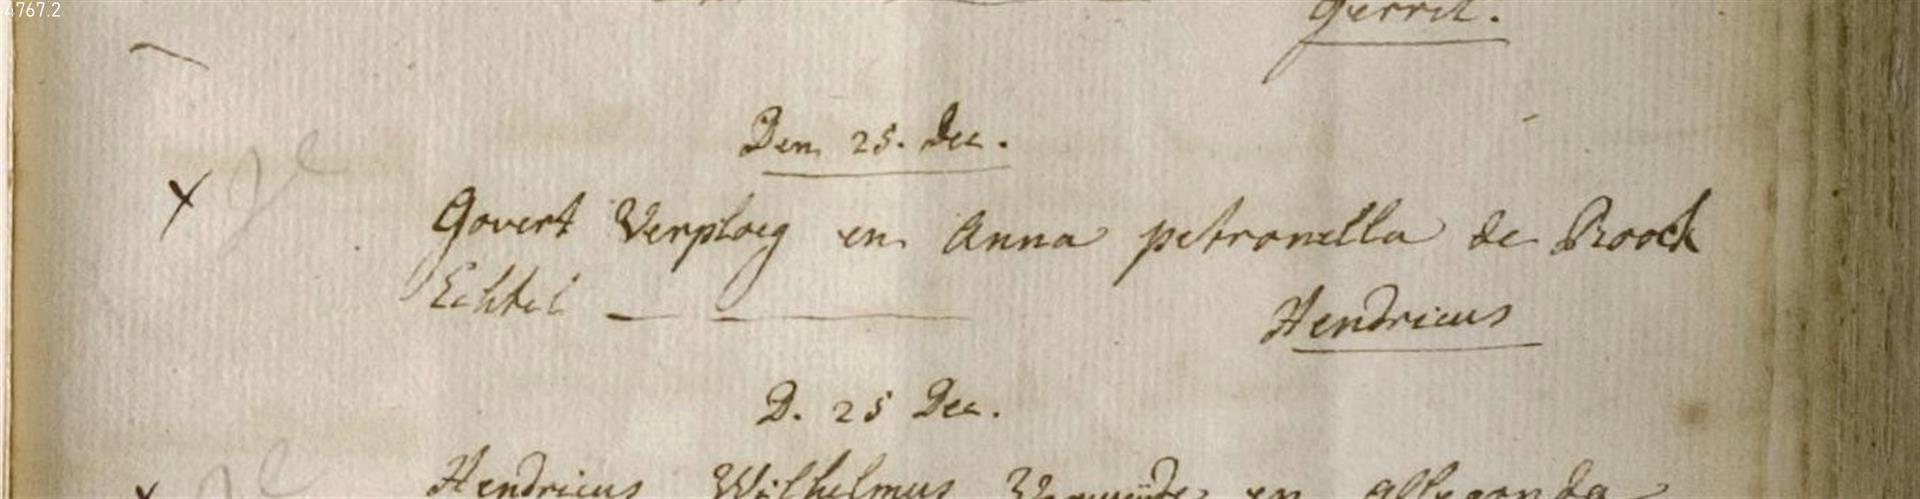 4767.2
Gerrit.
Den 25. Dec.
Govert Verploeg en Anna petronella deRoock
Echtel
Hendricus
D. 25 Dec.
Hendricus Wilhelmus en